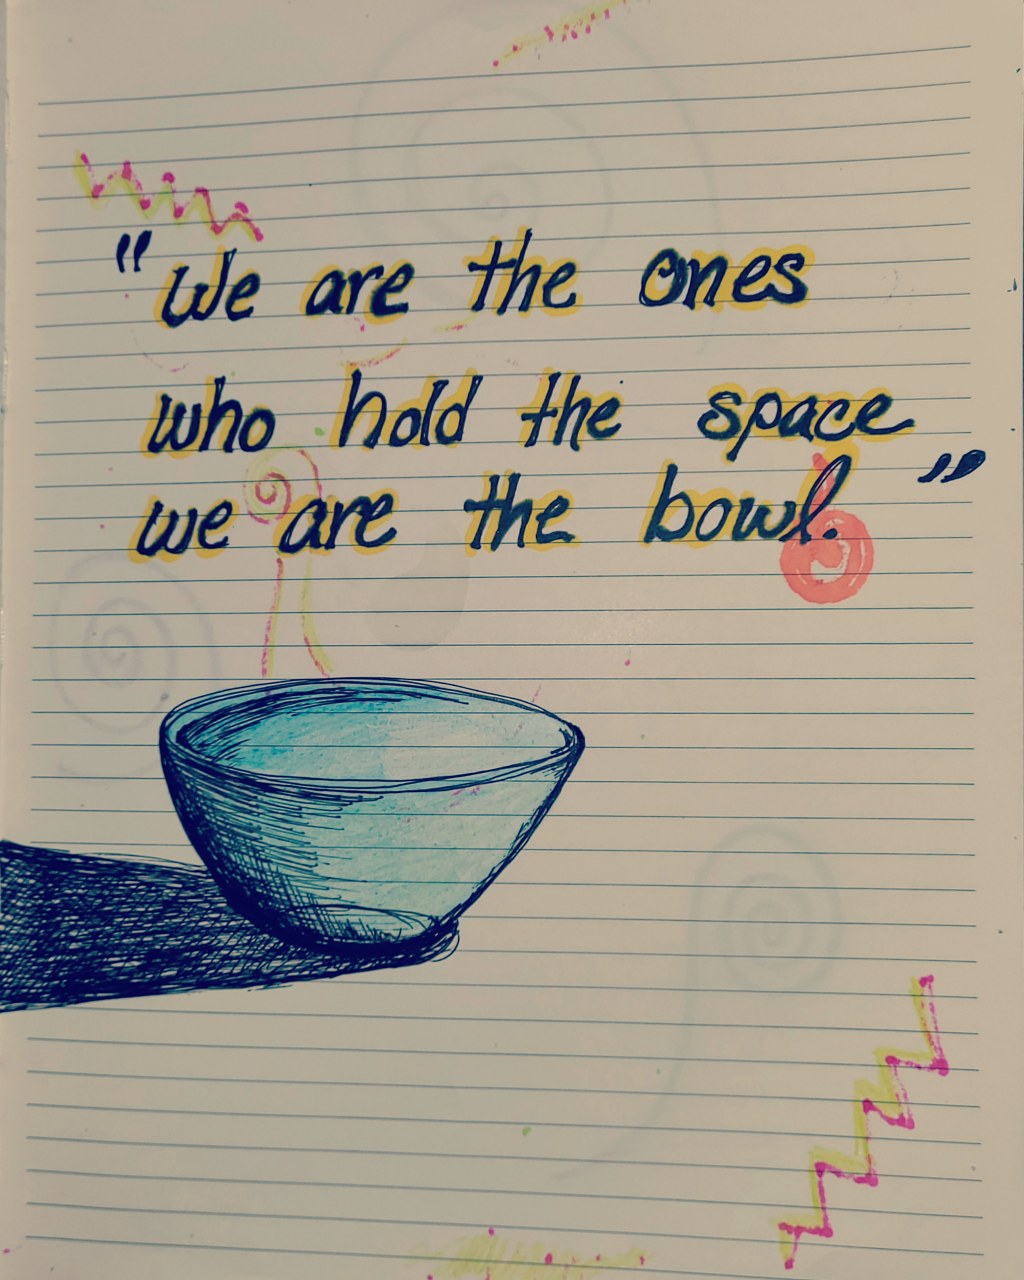 "We are the ones
who hold the space
we are the bowl."